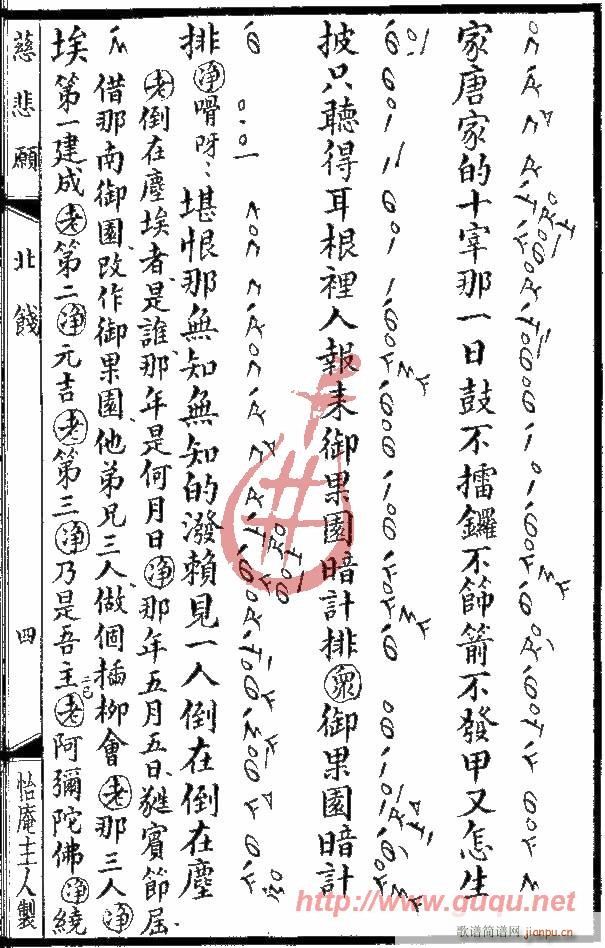 家唐家的十宰那一日鼓不擂鑼不篩箭不發甲又怎生
披只聽得耳根裡人報来御果園暗計排衆御果園暗計
排淨嘚呀堪恨那無知無知的潑賴見一人倒在倒在塵
老倒在塵埃者是誰那年是何月日淨那年五月五日蕤賓節屆
借那南御園改作御果園他弟兄三人做個插柳會老那三人淨
埃第一建成老第二淨元吉老第三淨乃是吾主老阿彌陀佛淨繞
慈悲願
北餞
四
怡庵主人製
http://www.guqu.net
歌谱简谱网
jianpu.cn